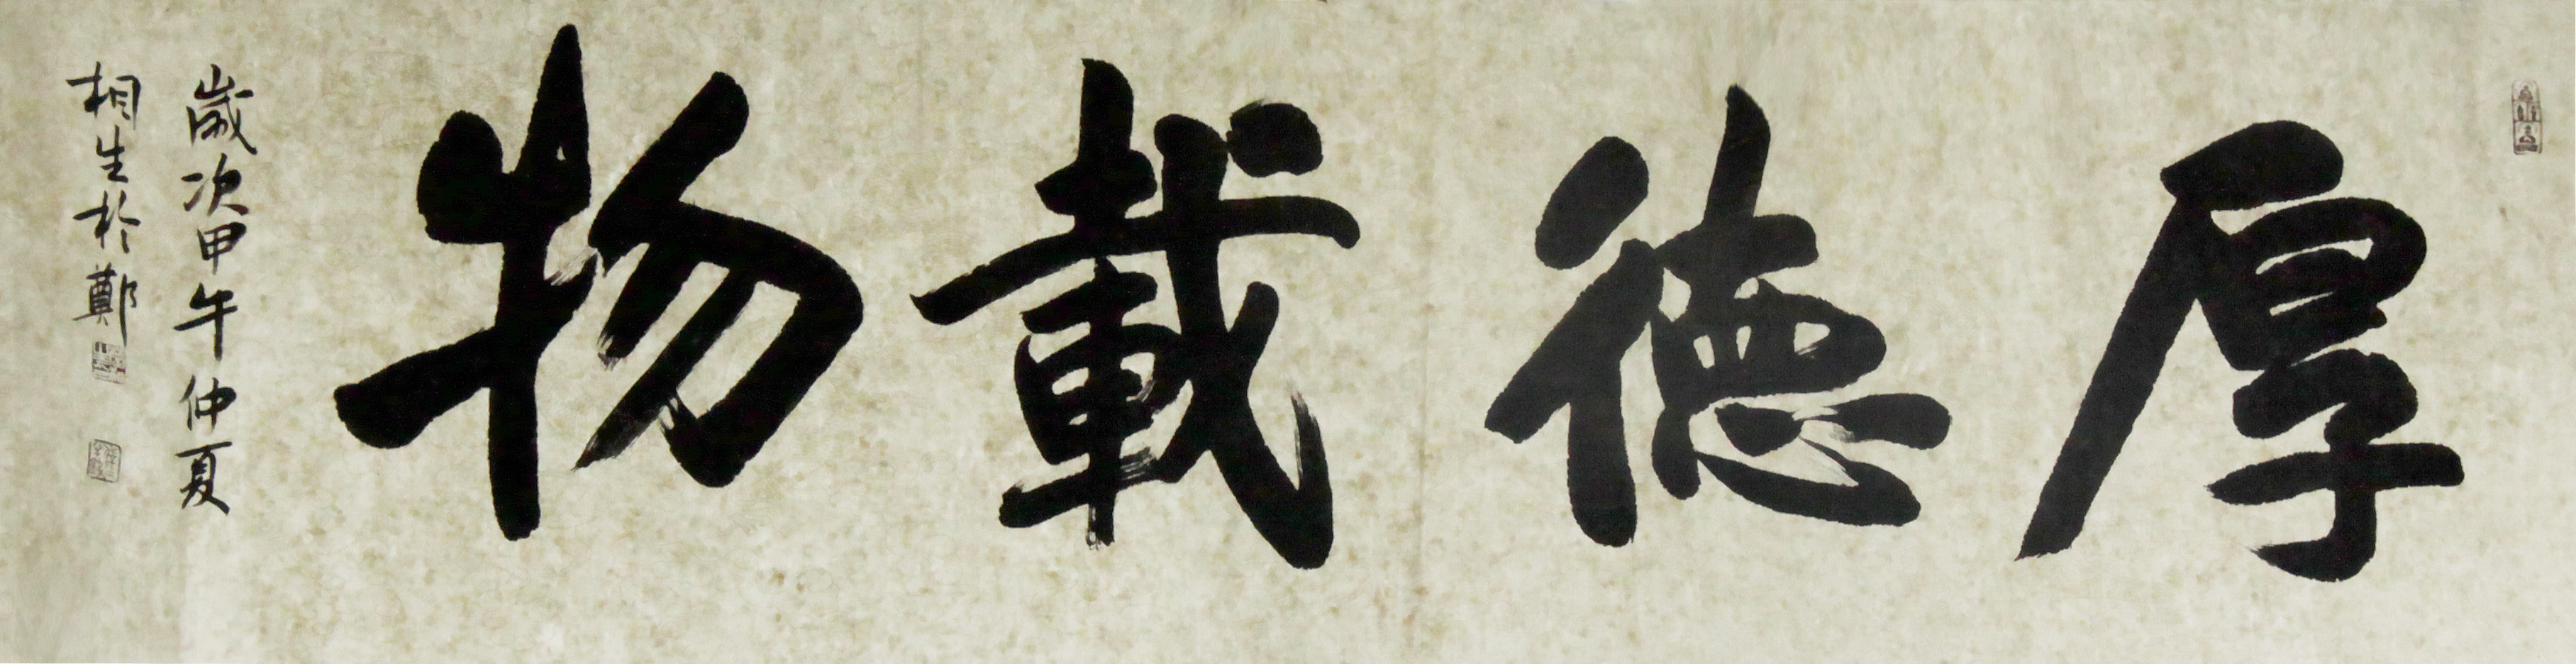 厚德載物
歲次甲午仲夏
相生於鄭